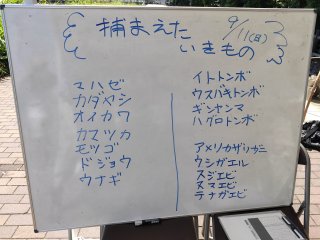 捕まえた
いきもの
9/11(日)
マハゼ
カダヤシ
オイカワ
カマツカ
モツゴ
ドジョウ
ウナギ
イトトンボ
ウスバキトンボ
ギンヤンマ
ハグロトンボ
アメリカザリガニ
ウシガエル
スジエビ
ヌマエビ
テナガエビ